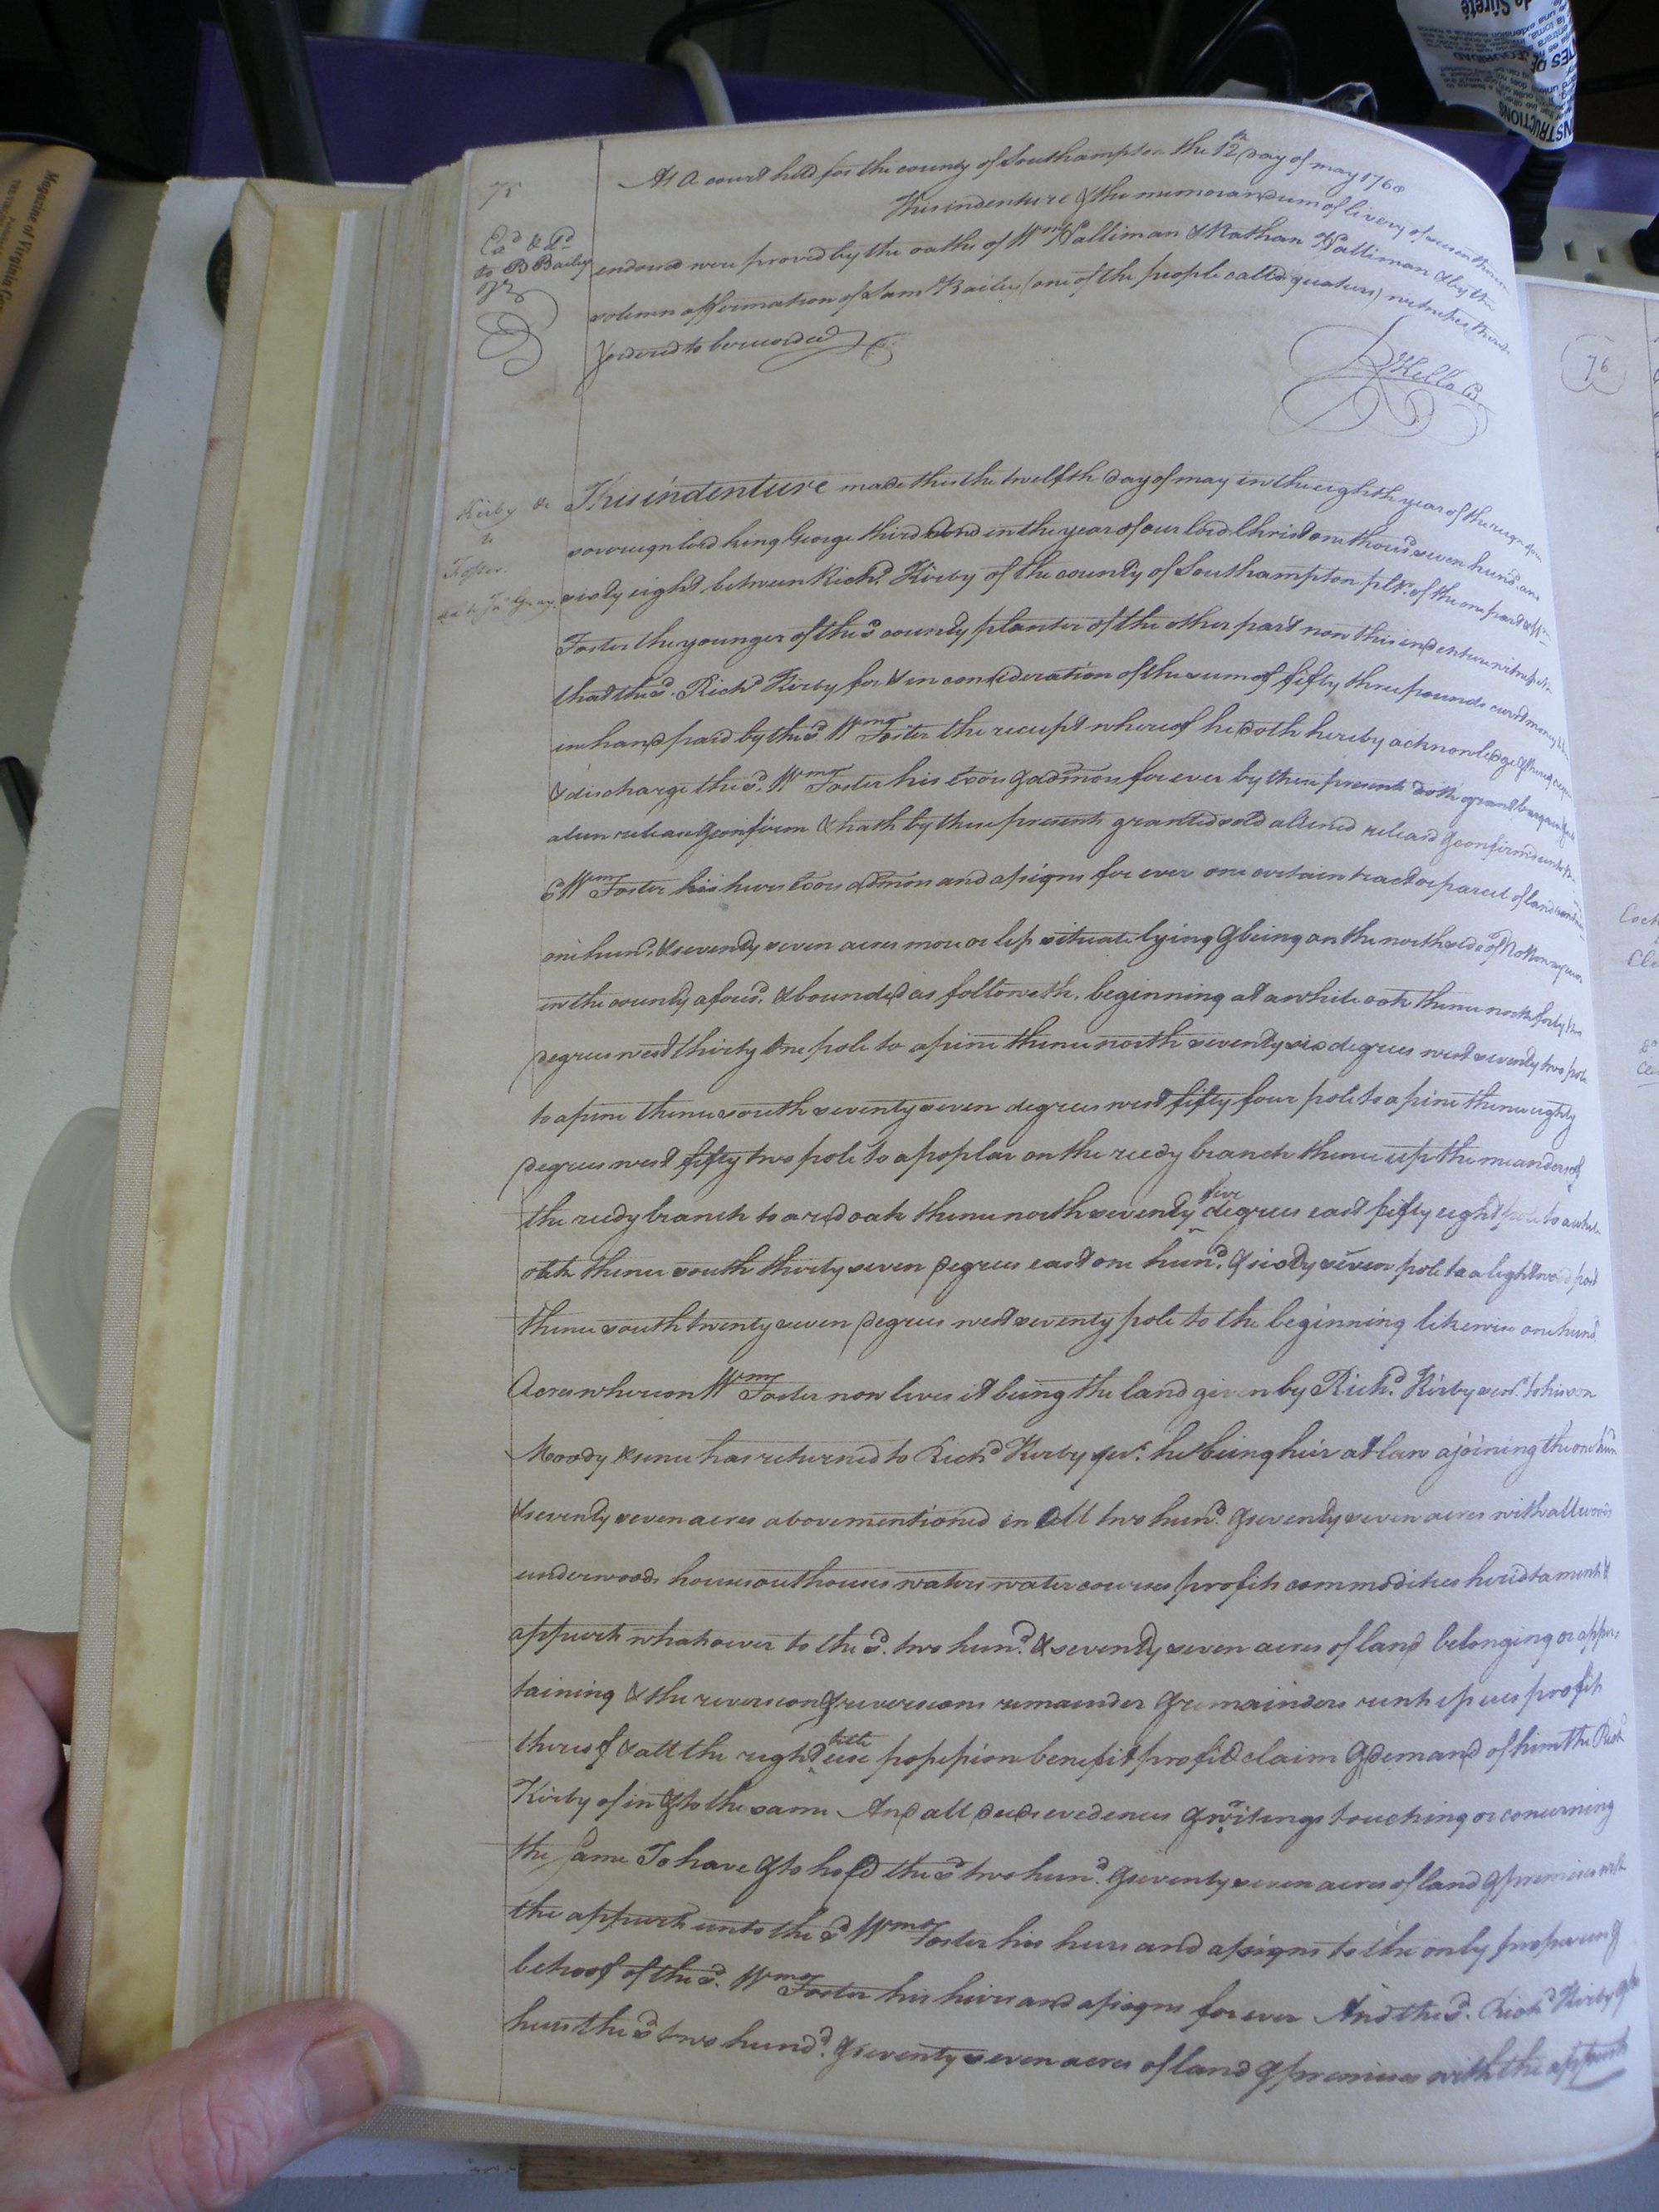 75
At a court held for the county of Southampton the 12th day of may 1768
This indenture & the memorandum of livery of
Exd & Dd
to B Bailey
endorsd were proved by the oaths of Wm Valliman & Nathan Valliman & by the
solemn affirmation of Sam Bailey (one of the people calld quakers) witnesses
& ordered to be recorded
R Kello Cl
Kirby &c
to
Foster
Dd to Jas Gray
This indenture made this the twelfth day of may in the eighth year of the reign of our
sovereign lord king George third and in the year of our lord Christ one thousd seven hund. and
sixty eight between Richd. Kirby of the county of Southampton pltr. of the one part & Wm
Foster the younger of the sd county planter of the other part now this indenture witnesseth
that the sd. Richd Kirby for & in consideration of the sum of fifty three pounds currt money
in hand paid by the sd Wm Foster the receipt whereof he doth hereby acknowledge & thereof
& discharge the sd. Wm Foster his exors & admors for ever by these presents doth grant bargain
alien release & confirm & hath by these presents granted sold aliened releasd & confirmd unto
sd Wm Foster his heirs exors admors and assigns for ever one certain tract or parcel of land
one hund. & seventy seven acres more or less situate lying & being on the north side of Nottoway
in the county aforesd. & bounded as followeth. beginning at a white oak thence north forty
degrees west thirty one pole to a pine thence north seventy six degrees west seventy two pole
to a pine thence south seventy seven degrees west fifty four pole to a pine thence eighty
degrees west fifty two pole to a poplar on the reedy branch thence up the meanders of
the reedy branch to a red oak thence north seventy five degrees east fifty eight pole to a white
oak thence south thirty seven degrees east one hund. & sixty seven pole to a lightwood post
thence south twenty seven degrees west seventy pole to the beginning likewise one hund
Acres whereon Wm Foster now lives it being the land given by Richd. Kirby senr. to his son
Moody & since has returned to Richd Kirby jur. he being heir at law ajoining the one hun
& seventy seven acres abovementioned in all two hund. & seventy seven acres with all woods
underwoods houses outhouses waters water courses profits commodities heridtaments &
appurts whatsoever to the sd. two hund. & seventy seven acres of land belonging or apper
taining & the reversion & reversions remainder & remainders rents issues profits
thereof & all the right title use possession benefit profit claim & demand of him the Richd
Kirby of in & to the same And all deeds evedences & writings touching or concerning
the same To have & to hold the sd two hund. & seventy seven acres of land & premises with
the appurts unto the sd Wm Foster his heirs and assigns to the only proper use &
behoof of the sd. Wm Foster his heirs and assigns for ever And the sd. Richd Kirby & his
heirs the sd two hund. & seventy seven acres of land & premises with the appurts
76
Magazine of Virginia
INSTRUCTIONS
de Sûreté